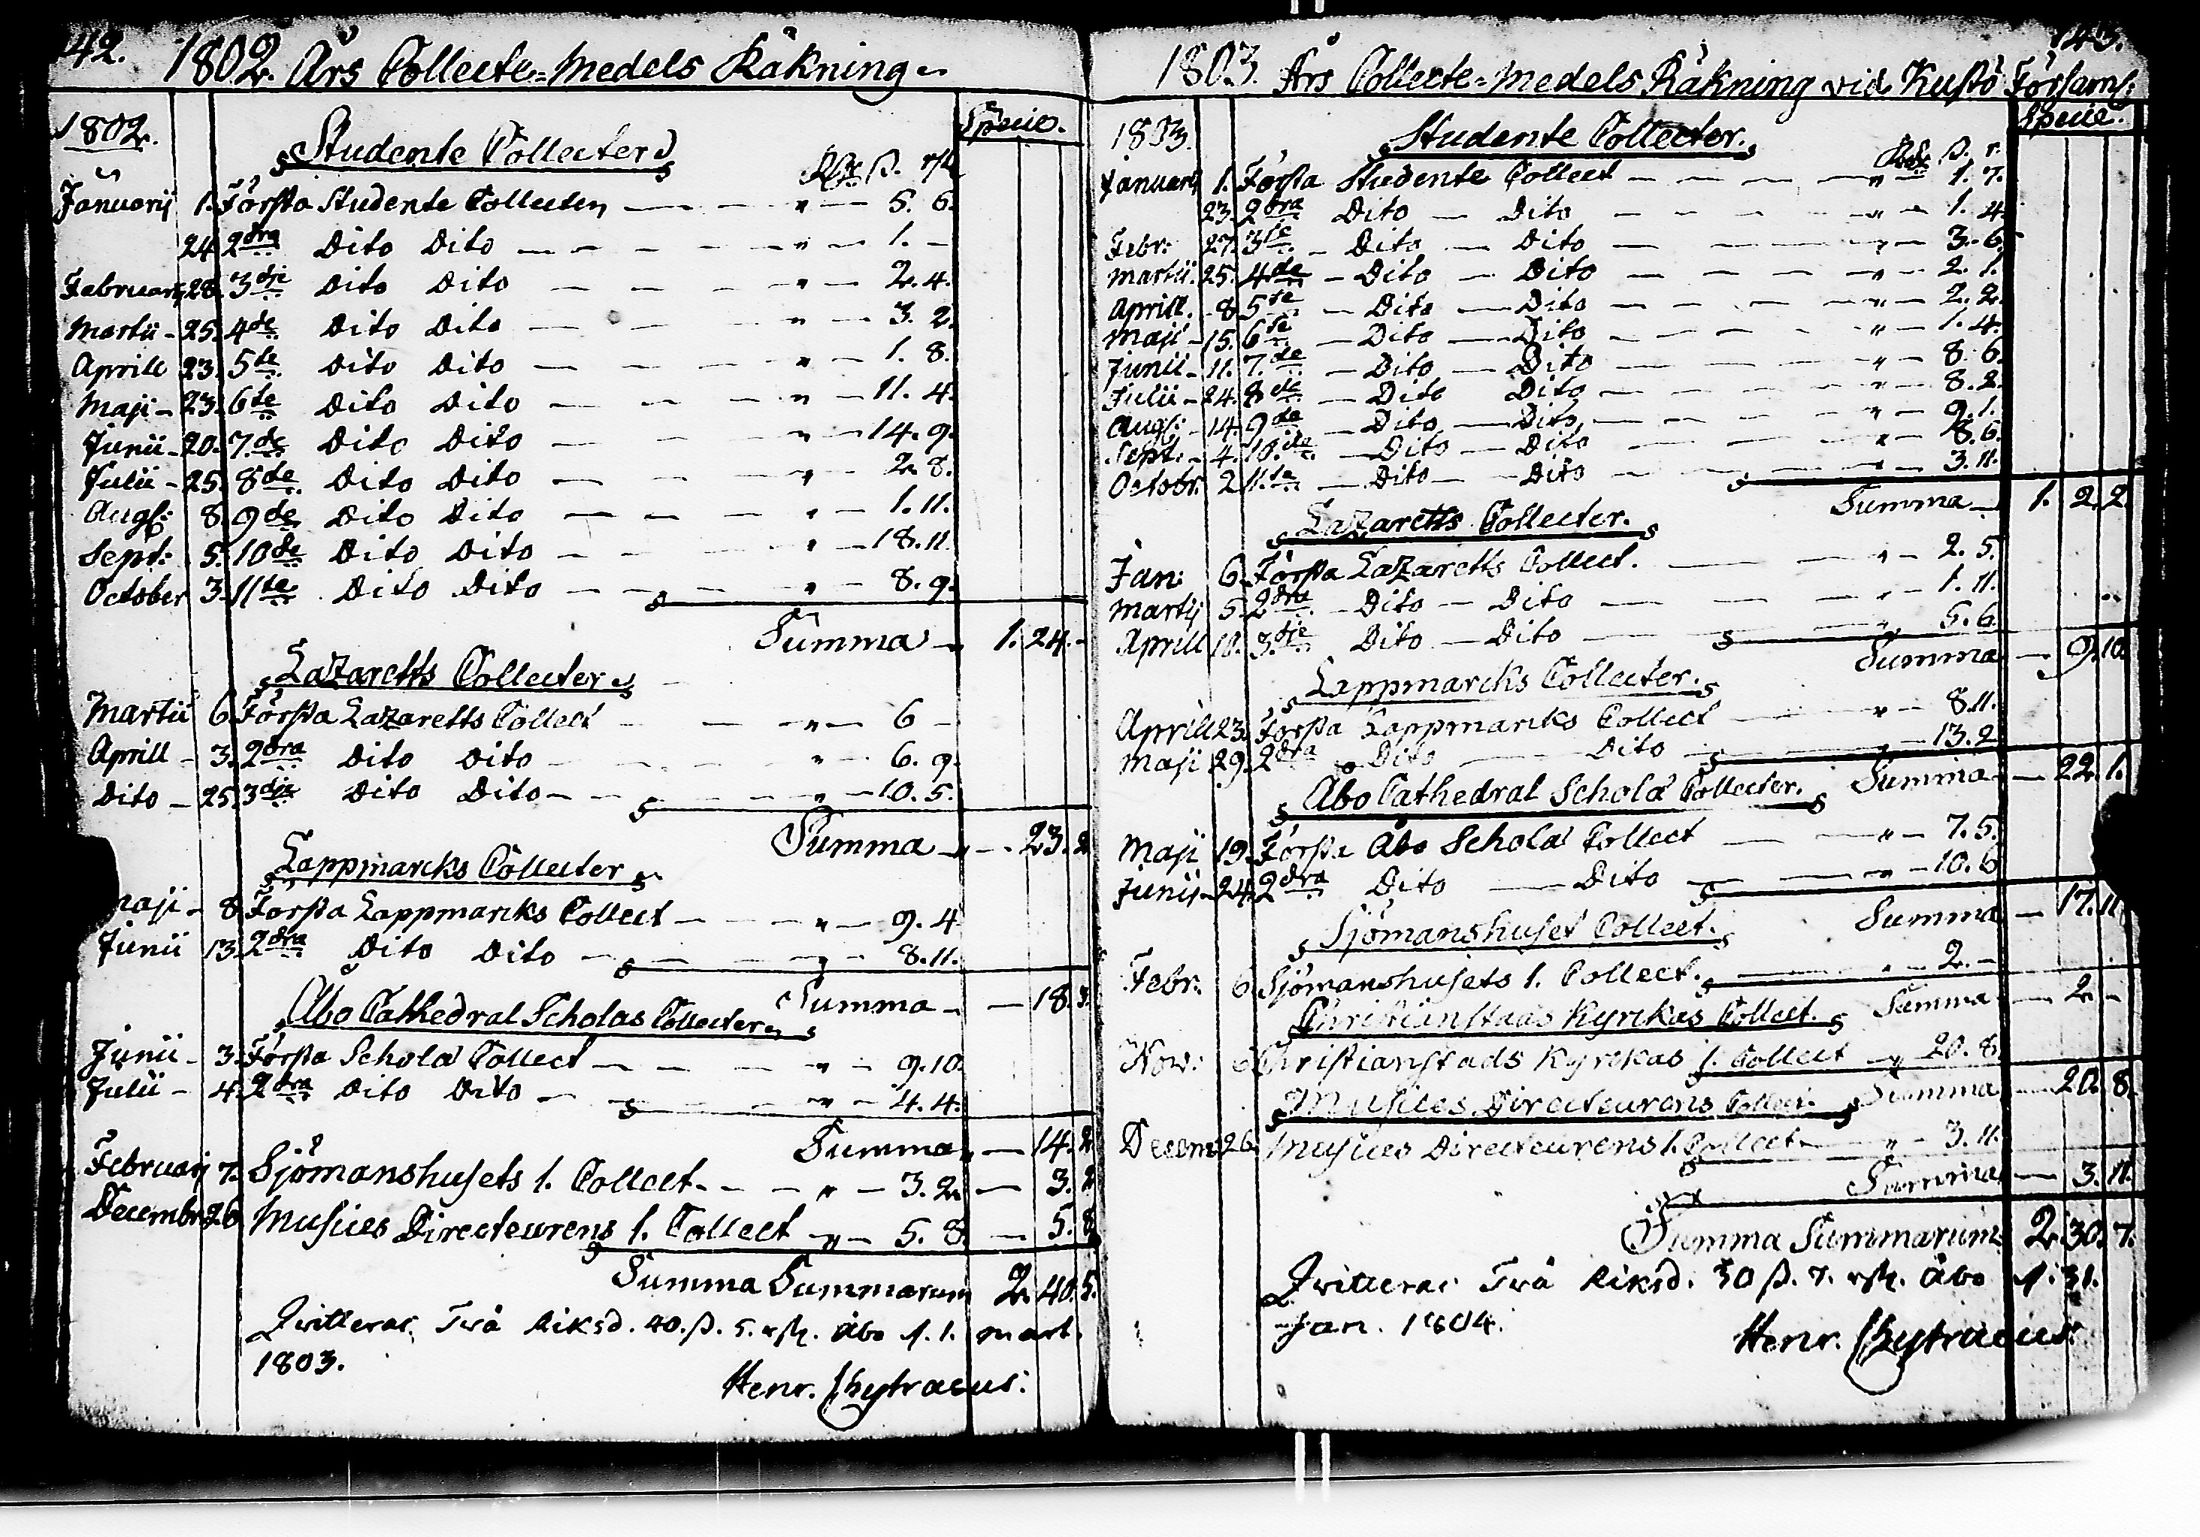 42. 1802. Års Collecte-Medels Räkning
1802. Specie.
Studente Collecter
Rdr ß. rst.
Januarij 1. Första Studente Collecten — — " — 5. 6.
24. 2dra Dito Dito — — — " — 1. —
Februarij 28. 3dje Dito Dito — — " — 2. 4.
Martii - 25. 4de Dito Dito — — " — 3. 2.
Aprill 23. 5te Dito Dito — — " — 1. 8.
Maji - 23. 6te Dito Dito — — " — 11. 4.
Junii - 20. 7de Dito Dito — — " — 14. 9.
Julii - 25. 8de Dito Dito — — " — 2. 8.
Augs: 8. 9de Dito Dito — — " — 1. 11.
Sept: 5. 10de Dito Dito — — " — 18. 11.
October 3. 11te Dito Dito — — " — 8. 9.
Summa — 1. 24. -
Lazaretts Collecter
Martii 6. Första Lazaretts Collect — — " — 6 -
Aprill - 3. 2dra Dito Dito — — " — 6. 9.
Dito - 25. 3dje Dito Dito — — " — 10. 5.
Summa — " — 23. 2
Lappmarcks Collecter
Maji - 8. Första Lappmarcks Collect — — " — 9. 4
Junii 13. 2dra Dito Dito — — " — 8. 11.
Summa — — 18. 3.
Åbo Cathedral Scholas Collecter
Junii - 3. Första Schola Collect — — " — 9. 10.
Julii - 4. 2dra Dito Dito — — " — 4. 4.
Summa — 14. 2
Februarij 7. Sjömanshusets 1. Collect. — — " — 3. 2. — 3. 2
Decembr 26. Musices Directeurens 1. Collect " — 5. 8. — 5. 8
Summa Summarum 2. 40. 5.
Qvitteras Två Riksd. 40. ß. 5. rst. Åbo d. 1. Mart.
1803.
Henr. Chytraeus:
143.
1803. Års Collecte-Medels Räkning vid Kustö Församl:
1803. Specie.
Studente Collecter.
Rdr ß. r.
Januarij 1. Första Studente Collect — — — " — 1. 7.
23. 2dra Dito — Dito — — — " — 1. 4.
Febr: 27. 3je — Dito — Dito — — — " — 3. 6.
Martii. 25. 4de — Dito — Dito — — — " — 2. 1.
Aprill. - 8. 5te — Dito — Dito — — — " — 2. 2.
Maji - 15. 6te — Dito — Dito — — — " — 1. 4.
Junii - 11. 7.de — Dito — Dito — — — " — 8. 6.
Julii - 24. 8de — Dito Dito — — — " — 8. 2.
Augs: - 14. 9de — Dito — Dito — — — " — 9. 1.
Sept: - 4. 10.de — Dito — Dito — — — " — 8. 6.
Octobr. 2. 11.te — Dito — Dito — — — " — 3. 11.
Summa — 1. 2. 2.
Lazaretts Collecter.
Jan: 6. Första Lazaretts Collect. — " — 2. 5.
Martij 5. 2dra — Dito — Dito — — " — 1. 11.
Aprill 10. 3.dje Dito — Dito — — " 5. 6.
Summa — 9. 10.
Lappmarcks Collecter.
Aprill 23. Första Lappmarcks Collect — — " — 8. 11.
Maji 29. 2dra Dito — Dito — — 13. 2
Summa — 22. 1.
Åbo Cathedral Schola Collecter.
Maji 19. Första Åbo Schola Collect — — " — 7. 5.
Junij - 24. 2dra Dito — Dito — " — 10. 6
Summa — 17. 11
Sjömanshuset Collect.
Febr: 6. Sjömanshusets 1. Collect. — " — 2. —
Summa — 2. -
Christianstads Kyrckas Collect.
Nov: 6. Christianstads Kyrckas 1. Collect — " 20. 8.
Summa — 20. 8.
Musices Directeurens Collect.
Decem: 26. Musices Directeurens 1. Collect — " — 3. 11.
Summa — 3. 11.
Summa Summarum 2. 30. 7.
Qvitteras Två Riksd. 30 ß. 7. rst. Åbo d. 31.
Jan. 1804.
Henr. Chytraeus